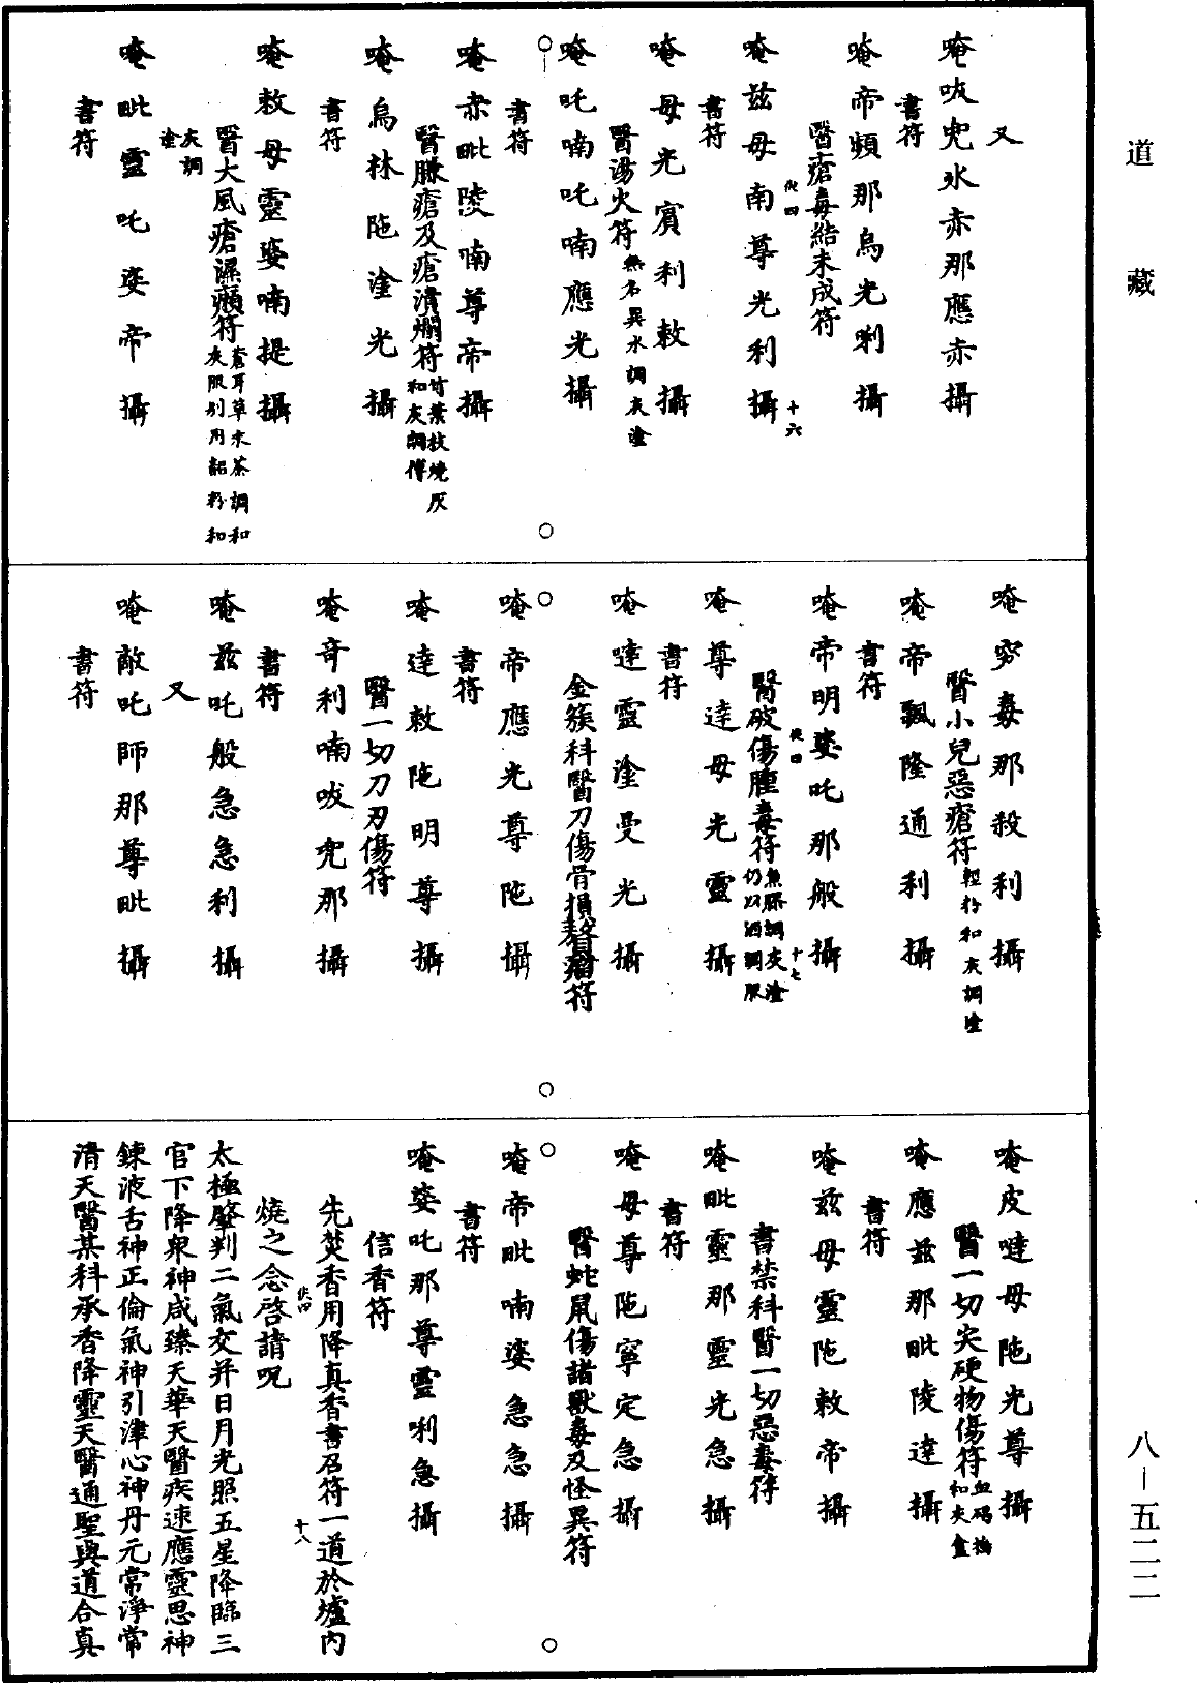 道藏
又
唵呅兜水赤那應赤攝
書符
唵帝頻那烏光唎攝
醫瘡毒結未成符
伙四
十六
唵玆母南尊光利攝
書符
唵母光賓利敕攝
醫湯火符無名異水調灰塗
唵吒喃吒喃應光攝
書符
唵赤毗陵喃尊帝攝
醫臁瘡及瘡潰爛符甘葉枝燒灰
和灰調傅
唵烏林陁塗光攝
書符
唵敕母靈娑喃提攝
醫大風瘡濕癩符蒼耳草末茶調和
灰服别用韶粉和
灰調
塗
唵毗靈吒娑帝攝
書符
唵穷毒那殺利攝
醫小兒惡瘡符輕粉和灰調塗
唵帝飄隆通利攝
書符
唵帝明娑吒那般攝
伙四
十七
醫破傷腫毒符魚膠調灰塗
仍以酒調服
唵尊達母光靈攝
書符
唵噠靈塗旻光攝
金簇科醫刀傷骨損符
唵帝應光尊陁攝
書符
唵達敕陁明尊攝
醫一切刀刃傷符
唵奇利喃呅兜那攝
書符
唵玆吒般急急利攝
又
唵敵吒師那尊毗攝
書符
唵皮噠母陁光尊攝
醫一切尖硬物傷符血碣搗
和灰盒
唵應玆那毗陵達攝
書符
唵玆母靈陁敕帝攝
書禁科醫一切惡毒符
唵毗靈那靈光急攝
書符
唵母尊陁寧定急攝
醫蛇鼠傷諸獸毒及怪異符
唵帝毗喃娑急急攝
書符
唵娑吒那尊靈唎急攝
信香符
先焚香用降真香書召符一道於壚内
伙四
十八
燒之念啓請呪
太極肇判二氣交并日月光照五星降臨三
官下降衆神咸臻天華天醫疾速應靈思神
鍊液舌神正倫氣神引津心神丹元常淨常
清天醫某科承香降靈天醫通聖與道合真
八—五二二